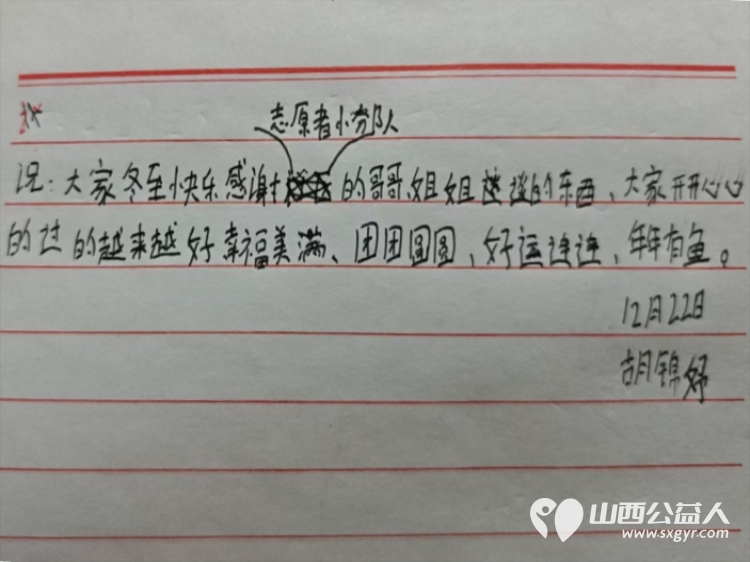 志愿者小分队
况:大家冬至快乐感谢的哥哥姐姐送的东西、大家开开心心
的过的越来越好幸福美满、团团圆圆、好运连连、年年有鱼。
12月22日
胡锦妤
山西公益人
www.sxgyr.com